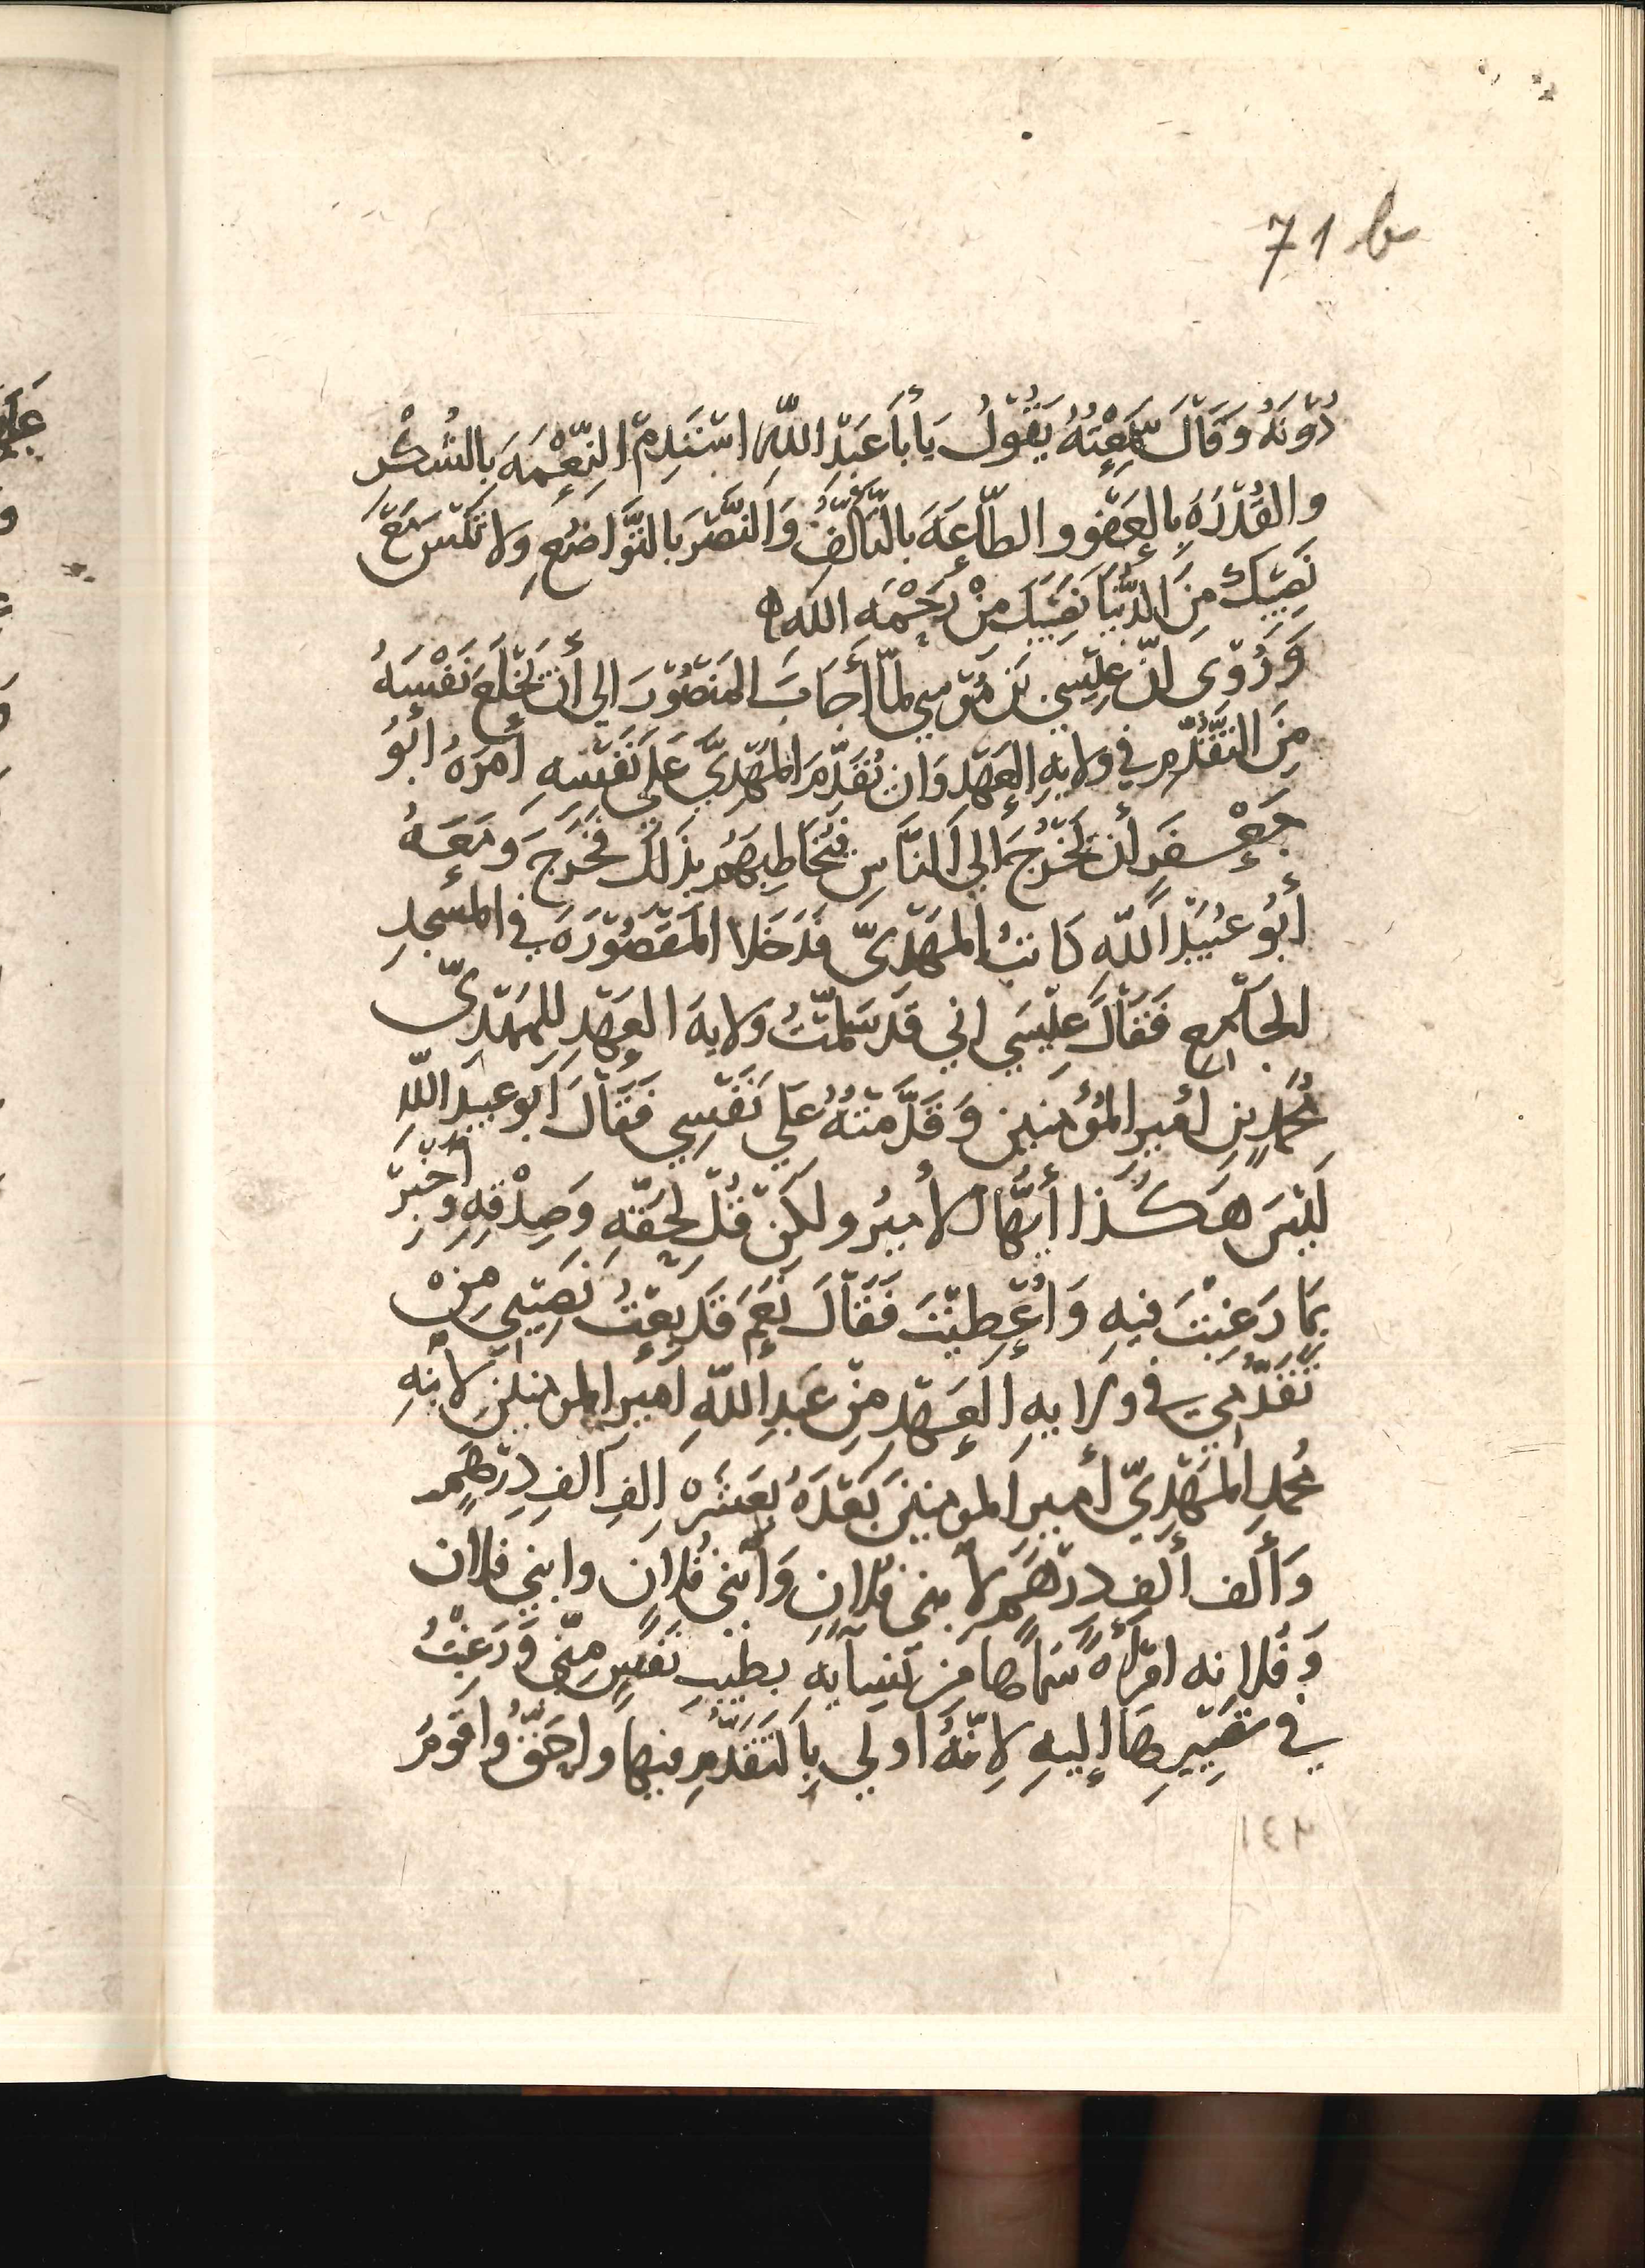 71 b
دُوْنَهُ وَقَالَ سَمِعْتُهُ يَقُوْلُ يَا أَبَا عَبْدِ اللّهِ اسْتَدِمْ النِّعْمَهَ بِالشُكْرِ
والقُدْرَهَ بِالعَفْوِ والطّاعَهَ بالتَّأَلُّفِ وَالنَّصْرَ بالتَّوَاضُعِ وَلا تَنْسَ مَعَ
نَصِيْبِكَ مِنَ الدُّنْيَا نَصِيْبَكَ مِنْ رَحْمَهِ اللهِ ه
وَرُوْى انّ عِيْسى بْنَ مُوْسى لمّا أَجَابَ المَنصُوْرَ الى أن يَخْلَعَ نَفْسَهُ
مِنَ التَّقَدُّمِ فى وِلايهِ العَهْدِ وَان يُقَدِّمَ المَهْدِىَّ عَلى نَفْسِهِ أمَرَهُ ابُوْ
جَعْفَرٍ أن يَخْرُجَ الى النَّاسِ فَيُخَاطِبَهُم بِذَلِكَ فَخَرَجَ وَمَعَهُ
أبُوْ عُبَيْدِ اللّهِ كَاتبُ المَهْدِىّ فَدَخَلا المَقْصُوْرَهَ فى المسْجِدِ
الجَامِع فَقَالَ عِيْسَى انى قَد سَلّمْتُ وَلايهَ العَهْدِ للمَهْدِىّ
مُحَمّدِ بنِ امِيرِ المُؤْمِنِينَ وَقَدَّمْتُهُ عَلى نَفْسِى فَقَالَ ابُو عُبيدِ اللّهِ
لَيْسَ هَكَذَا أيُّهَا الأمِيرُ ولكن قُل بِحَقّهِ وَصِدْقِهِ وأخْبِرْ
بِمَا رَغِبْتَ فيهِ وَاُعْطِيْتَ فَقَالَ نَعَم قَد بِعْتُ نَصِيْبى مِنْ
تَقَدُّمِى فى ولايهِ العَهْدِ مِنْ عَبدِ اللّهِ امِيرِ المومنينَ لابْنِهِ
مُحمدِ المَهْدِىّ أمِيرِ المومنِينَ بَعْدَهُ بِعَشَرَهِ الفِ الفِ دِرْهَمٍ
وَأَلف ألفِ درْهَمٍ لابنى فُلانٍ وَابْنى فُلان وابنى فلان
وَفُلانه امْرَأهً سَمّاهَا مِنْ نِسَآيهِ بطِيْبِ نَفْسٍ مِنّى وَرَغِبْتُ
فى تَصْيِيرِهَا اليهِ لانّهُ أولى بِالتَّقَدُّمِ فيها واحَقُّ وَاقْوَمُ